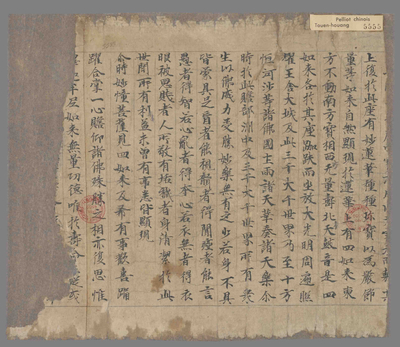 Pelliot chinois
Touen-houang
上復於此座有妙蓮華種種珍寶以為嚴飾
量等如來自然顯現於蓮華上有四如來東
方不動南方寶相西无量壽北天鼓音是四
如來各於其座跏趺而坐放大光明周遍照
耀王舍大城及此三千大千世界乃至十方
恒河沙等諸佛國土雨諸天華奏諸天樂尒
時於此贍部洲中及三千大千世界所有衆
生以佛威力受勝妙樂無有乏少若身不具
皆蒙具足盲者能視聾者得聞瘂者能言
愚者得智若心亂者得本心若衣無者得衣
服被惡賤者人所敬有垢穢者身清潔於此
世間所有利益未曾有事悉皆顯現
尒時妙幢菩薩見四如來及希有事歡喜踊
躍合掌一心瞻仰諸佛殊勝之相亦復思惟
迦牟尼如來無量功德唯於壽命疑或